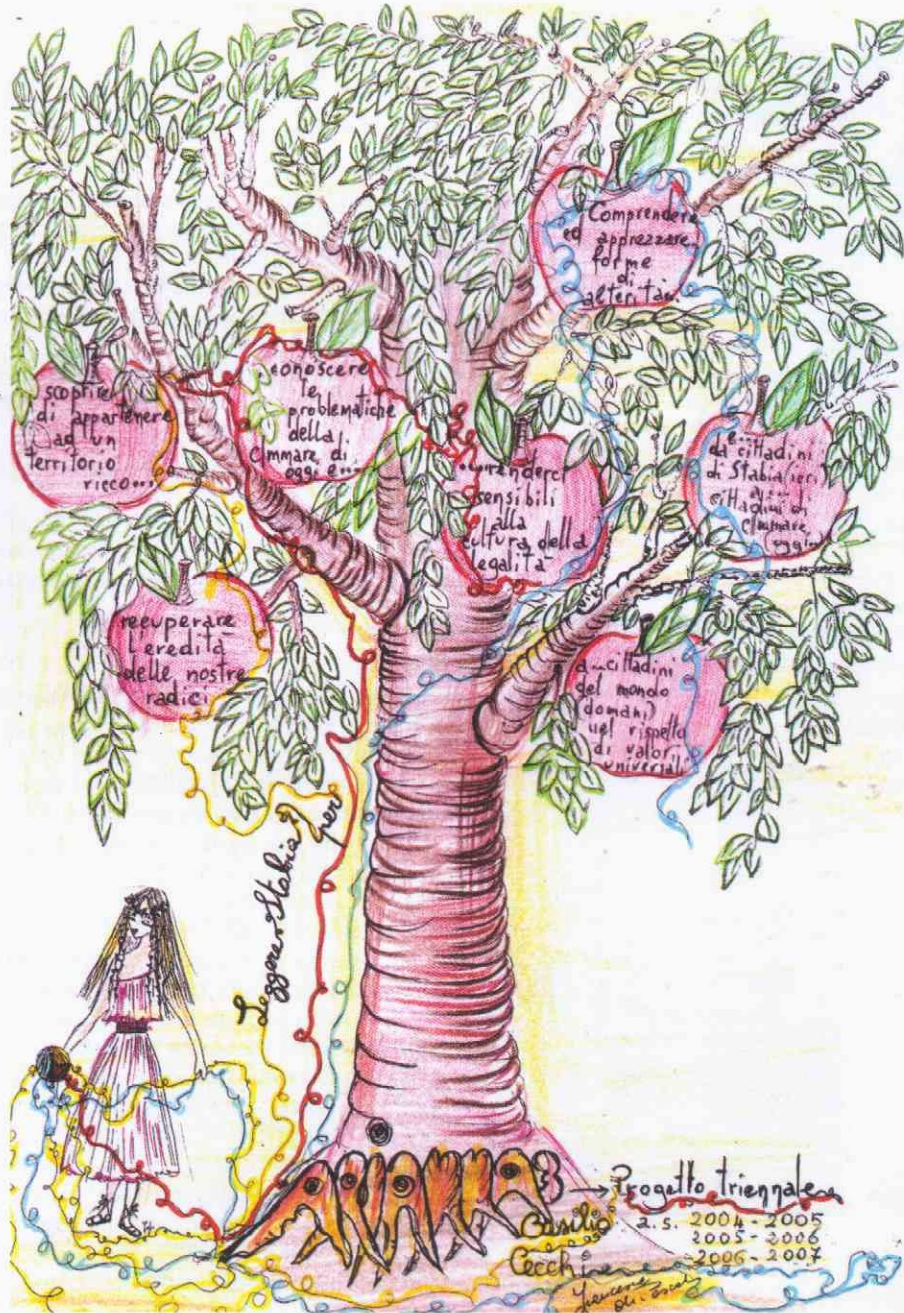 Comprendere
ed apprezzare
forme
di
alterità...
scoprire
di appartenere
ad un
territorio
ricco...
conoscere
le
problematiche
della
C/mmare di
oggi e...
...renderci
sensibili
alla
cultura della
legalità
e...
da cittadini
di Stabia (ieri)
a...
cittadini di
C/mmare
(oggi)
recuperare
l'eredità
delle nostre
radici
a...cittadini
del mondo
(domani)
nel rispetto
di valori
universali
Leggere Stabia
per
Progetto triennale
Basilio
Cecchi
a.s. 2004-2005
2005-2006
2006-2007